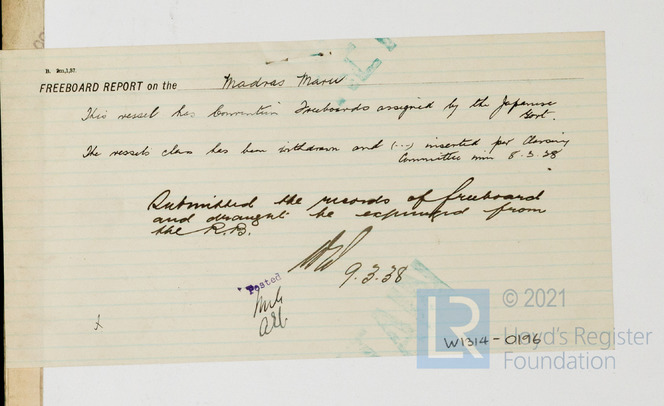 FREEBOARD REPORT on the Madras Maru
This vessel has Convention Freeboards assigned by the Japanese
Govt.
The vessels class has been withdrawn and (...) inserted per Classing
Committee min 8.3.38
Submitted the records of freeboard
and draught be expunged from
the R.B.
9.3.38
Posted
© 2021
LR
Lloyd's Register
Foundation
W1314-0196